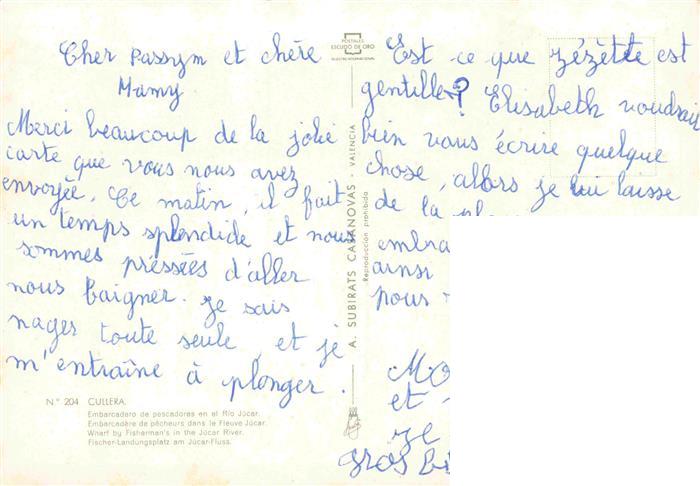 Cher Passym et chère
Mamy
Merci beaucoup de la jolie
carte que vous nous avez
envoyée. Ce matin, il fait
un temps splendide et nous
sommes préssées d'aller
nous baigner. je sais
nager toute seule, et je
m'entraîne à plonger.
N° 204 CULLERA.
Embarcadero de pescadores en el Río Júcar.
Embarcadère de pêcheurs dans le Fleuve Júcar.
Wharf by Fisharman's in the Júcar River.
Fischer-Landungsplatz am Júcar-Fluss.
POSTALES
ESCUDO DE ORO
A. SUBIRATS CASANOVAS - VALENCIA
Reproducción prohibida
Est-ce que zézètte est
gentille? Elisabeth voudrait
bien vous écrire quelque
chose, allors je lui laisse
de la
embra
ainsi
pous
et
je
gros